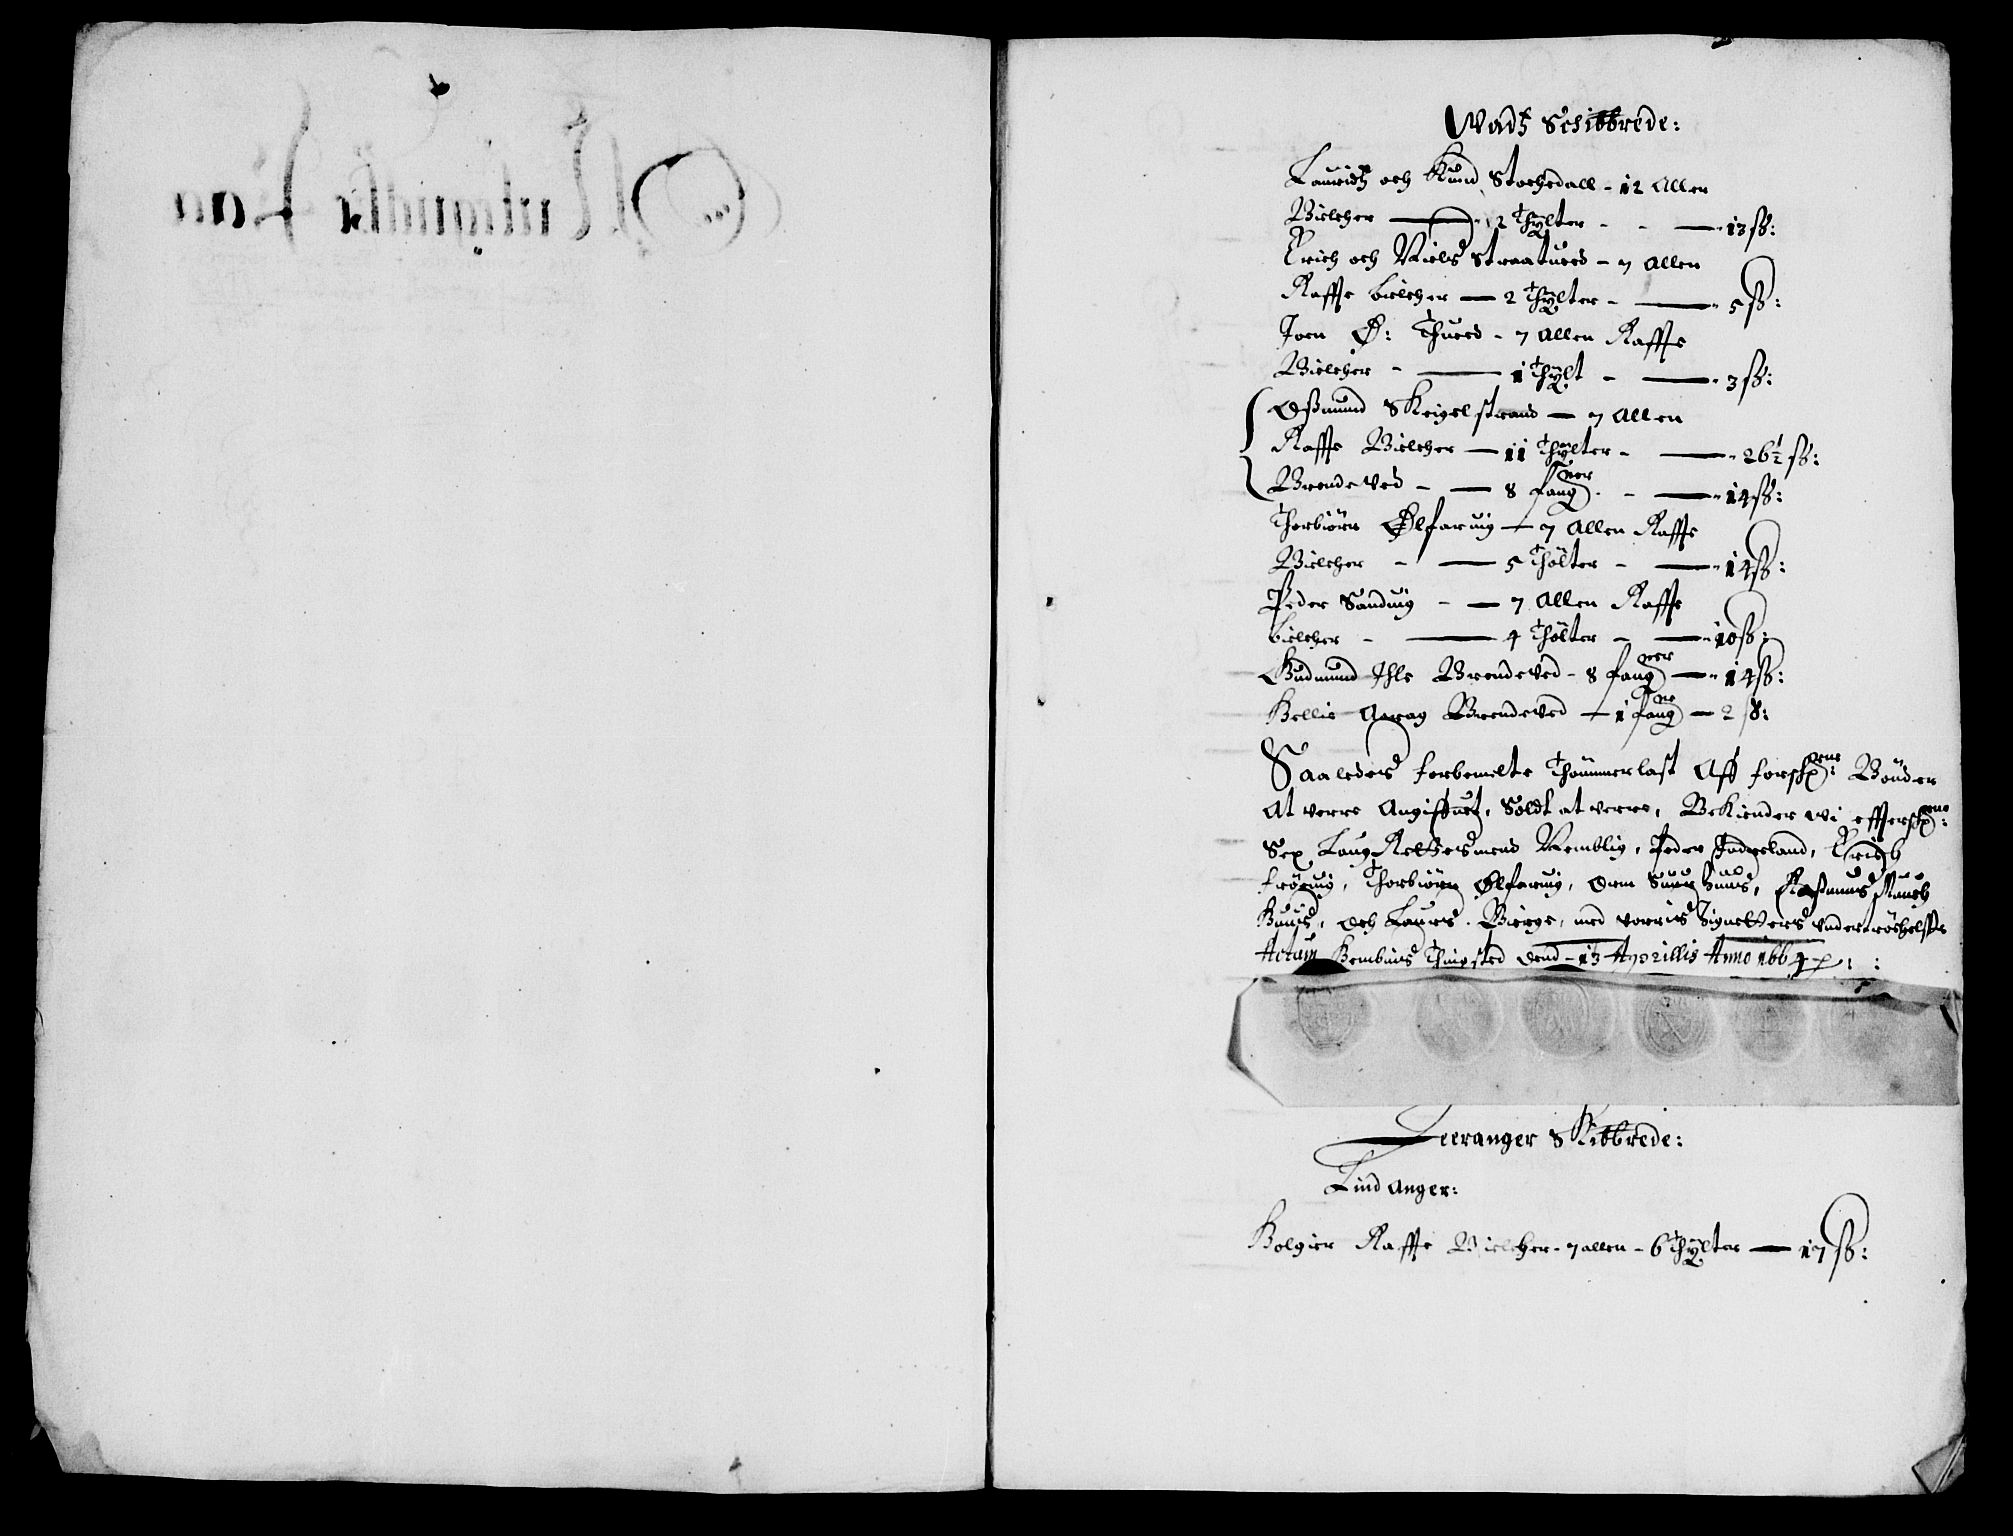 Wadtz Schibbrede:
Lauridtz och Knud Stochedall - 12 Allen
Bielcher — 2 Thylter - - — 13 ß:
Erich och Niels Straatued - 7 Allen
Raffte bielcher — 2 Thylter - — 5 ß:
Joen Ø: Thued - 7 Allen Raffte
Bielcher - — 1 Thylt - — 3 ß:
Oßmund Skeigelstrand — 7 Allen
Raffte Bielcher — 11 Thylter - — 26½ ß:
Brendeved - — 8 fangner - — 14 ß:
Thorbiørn Ølfaruig — 7 Allen Raffte
Bielcher - — 5 Thölter - — 14 ß:
Peder Sanduig - — 7 Allen Raffte
bielcher - — 4 Thölter - — 10 ß:
Gudmund Ihle Brendeved - 8 fangner — 14 ß:
Hellie Aarag Brendeved — 1 fangne — 2 ß:
Saaledes forbemelte Thömmerlast Aff forschrne: Bönder
At verre Angiffuet, Soldt at verre, Bekiender wi effterschrne:
Sex LaugRettesmend Nemblig, Peder Inderland, Erich
frøeuig, Thorbiörn Ølfaruig, Orm Hauuis, Raßmus
Huus, Och Laures Bierge, med vorris Signetters vndertröchelsse
Actum Hembnis Thingsted Dend 13 Apprillis Anno 1664
Leeranger Skibbrede:
Lindanger:
Holgier Raffte Bielcher - 7 allen - 6 Thylter — 17 ß: